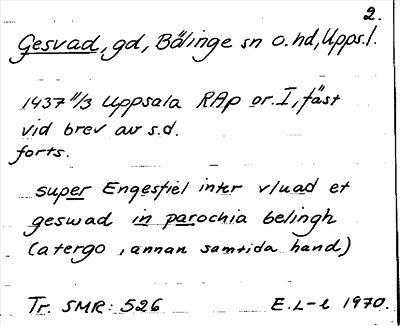 2.
Gesvad, gd, Bälinge sn o. hd, Upps.l.
1437 11/3 Uppsala RAp or. I, fäst
vid brev av s.d.
forts.
super Engesfiel inter vluad et
geswad in parochia belingh
(a tergo, annan samtida hand)
Tr. SMR: 526 E.L-l 1970.